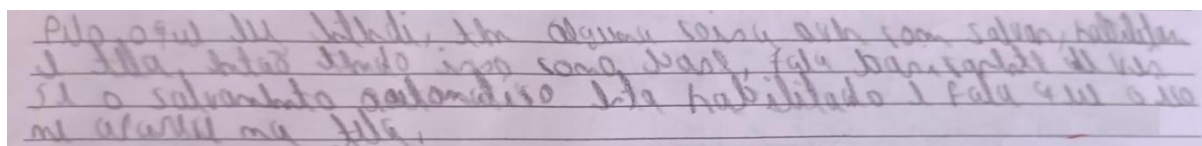 Pelo oque eu entendi, tem alguma coisa aver com salvar, habilitar
e tela, então tendo isso como base, fala
se o salvamento automatico esta habilitado e fala que
me aparece na tela.